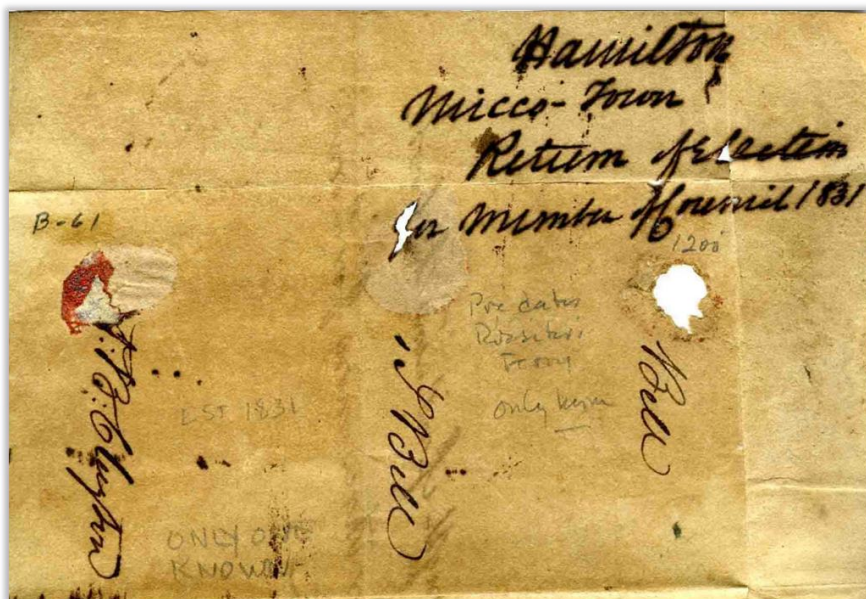 Hamilton
Micco-Town
Return of Election
for Member of Council 1831
B-61
1200
Pre dates
Ferry
only known
LST 1831
ONLY ONE
KNOWN
J Bell
Bell